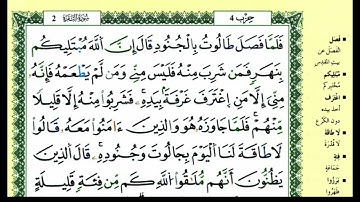 2 سُورَةُ البَقَرَةِ
حِزْب 4
فَلَمَّا فَصَلَ طَالُوتُ بِالْجُنُودِ قَالَ إِنَّ اَللَّهَ مُبْتَلِيكُم
بِنَهَرٍ فَمَن شَرِبَ مِنْهُ فَلَيْسَ مِنِّي وَمَن لَّمْ يَطْعَمْهُ فَإِنَّهُ
مِنِّي إِلَّا مَنِ اِغْتَرَفَ غَرْفَةَۢ بِيَدِهِۦ فَشَرِبُواْ مِنْهُ إِلَّا قَلِيلًا
مِّنْهُمْ فَلَمَّا جَاوَزَهُۥ هُوَ وَالذِينَ ءَامَنُواْ مَعَهُۥ قَالُواْ
لَا طَاقَةَ لَنَا اَلْيَوْمَ بِجَالُوتَ وَجُنُودِهِۦ قَالَ اَلذِينَ
يَظُنُّونَ أَنَّهُم مُّلَٰقُواْ اُللَّهِ كَم مِّن فِئَةٍ قَلِيلَةٍ
فَصَلَ
الفَصْل عن
بيت المقدس
مُبْتَلِيكُم
مُخْتَبِرُكُمْ
اغْتَرَفَ
أخذ بيده
دون الكَرْع
لَا طَاقَةَ
لَا قُدْرَةَ
فِئَة
جَمَاعَة
بَرَزُوا
ظَهَرُوا